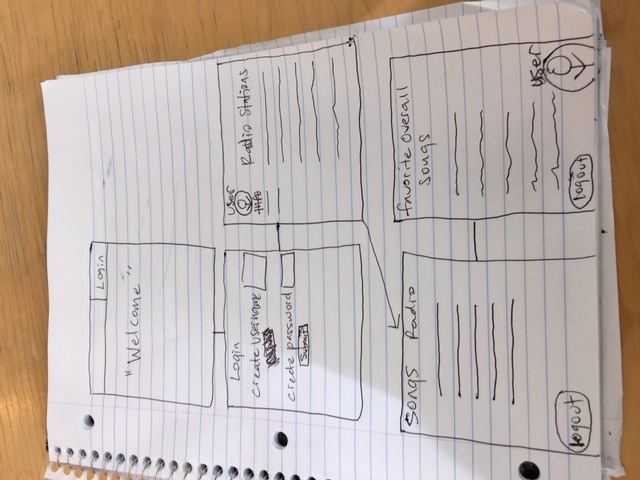 Login
"Welcome"
Login
create username
create password
Submit
user
Info
Radio Stations
Songs Radio
logout
favorite overall
songs
logout
user